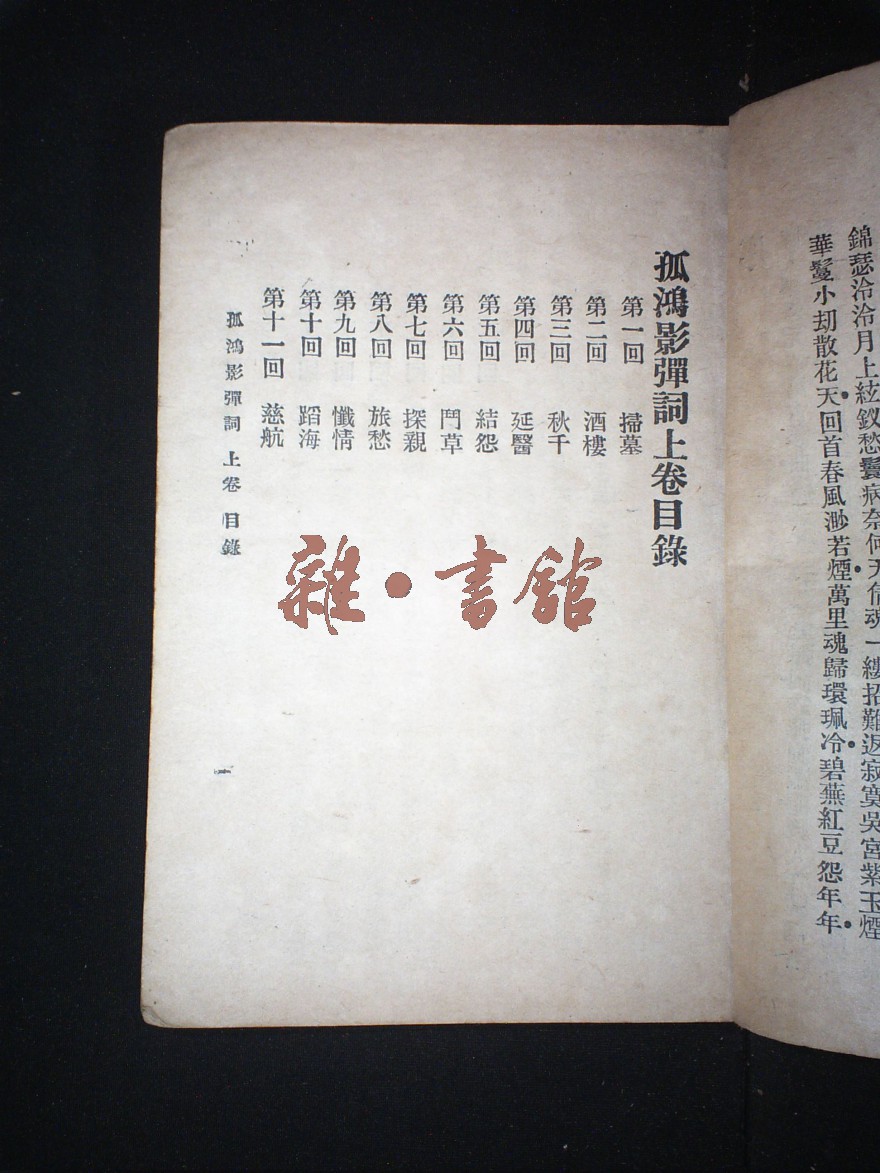 錦瑟泠泠月上絃釵愁鬢病奈何天倩魂一縷招難返寂寞吳宮紫玉煙
華鬘小刧散花天回首春風渺若煙萬里魂歸環珮冷碧蕪紅豆怨年年
孤鴻影彈詞上卷目錄
第一回 掃墓
第二回 酒樓
第三回 秋千
第四回 延醫
第五回 結怨
第六回 鬥草
第七回 探親
第八回 旅愁
第九回 懺情
第十回 蹈海
第十一回 慈航
孤鴻影彈詞 上卷 目錄
一
雜·書館